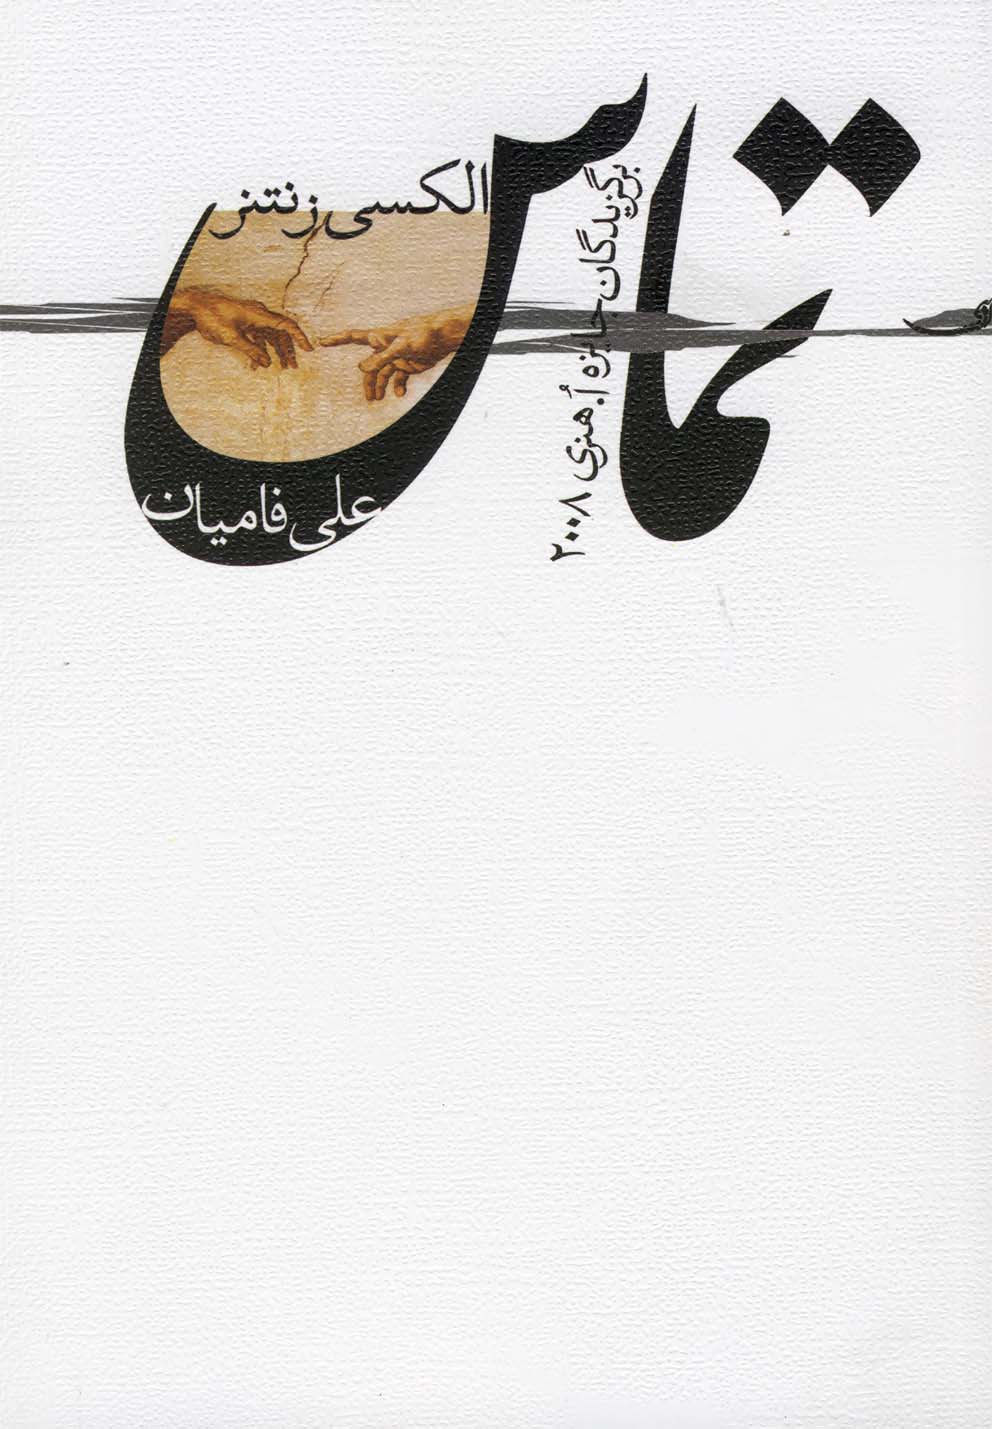 تماس
برگزیدگان جایزه اُ. هنری ۲۰۰۸
الکسی زنتنر
علی فامیان